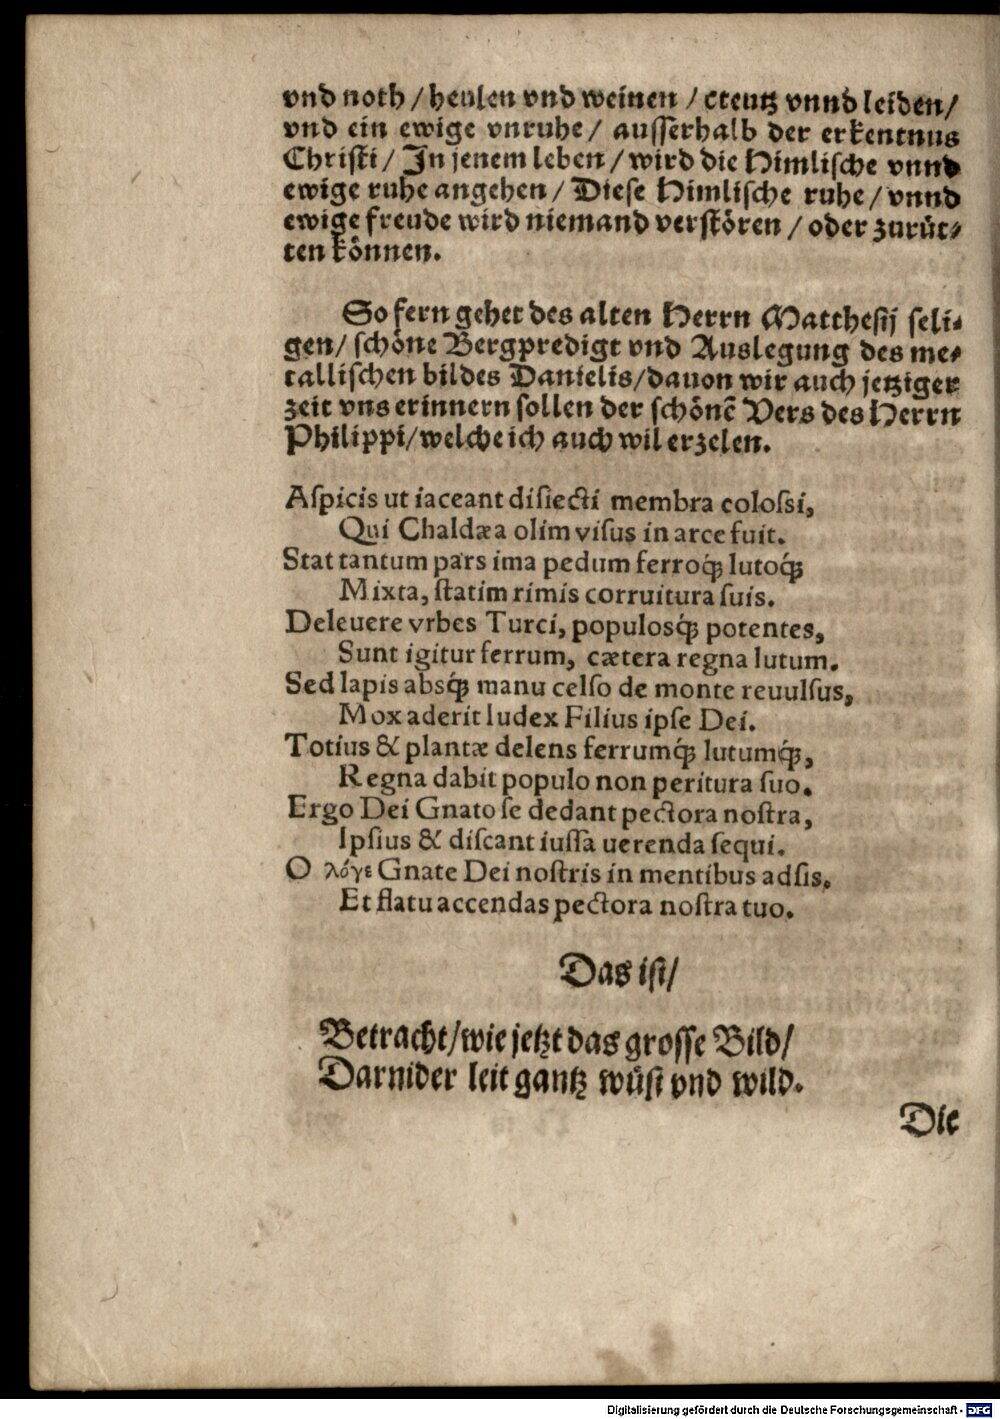 vnd noth / heulen vnd weinen / creutz vnnd leiden /
vnd ein ewige vnruhe / ausserhalb der erkentnus
Christi / In jenem leben / wird die Himlische vnnd
ewige ruhe angehen / Diese Himlische ruhe / vnnd
ewige freude wird niemand verstören / oder zurüt-
ten können.
So fern gehet des alten Herrn Matthesij seli-
gen / schöne Bergpredigt vnd Auslegung des me-
tallischen bildes Danielis / dauon wir auch jetziger
zeit vns erinnern sollen der schönē Vers des Herrn
Philippi / welche ich auch wil erzelen.
Aspicis ut iaceant disiecti membra colossi,
Qui Chaldæa olim visus in arce fuit.
Stat tantum pars ima pedum ferroq́; lutoq́;
Mixta, statim rimis corruitura suis.
Deleuere vrbes Turci, populosq́; potentes,
Sunt igitur ferrum, cætera regna lutum.
Sed lapis absq́; manu celso de monte reuulsus,
Mox aderit Iudex Filius ipse Dei.
Totius & plantæ delens ferrumq́; lutumq́;,
Regna dabit populo non peritura suo.
Ergo Dei Gnato se dedant pectora nostra,
Ipsius & discant iussa uerenda sequi.
O λόγε Gnate Dei nostris in mentibus adsis,
Et flatu accendas pectora nostra tuo.
Das ist /
Betracht / wie jetzt das grosse Bild /
Darnider leit gantz wüst vnd wild.
Die
Digitalisierung gefördert durch die Deutsche Forschungsgemeinschaft - DFG